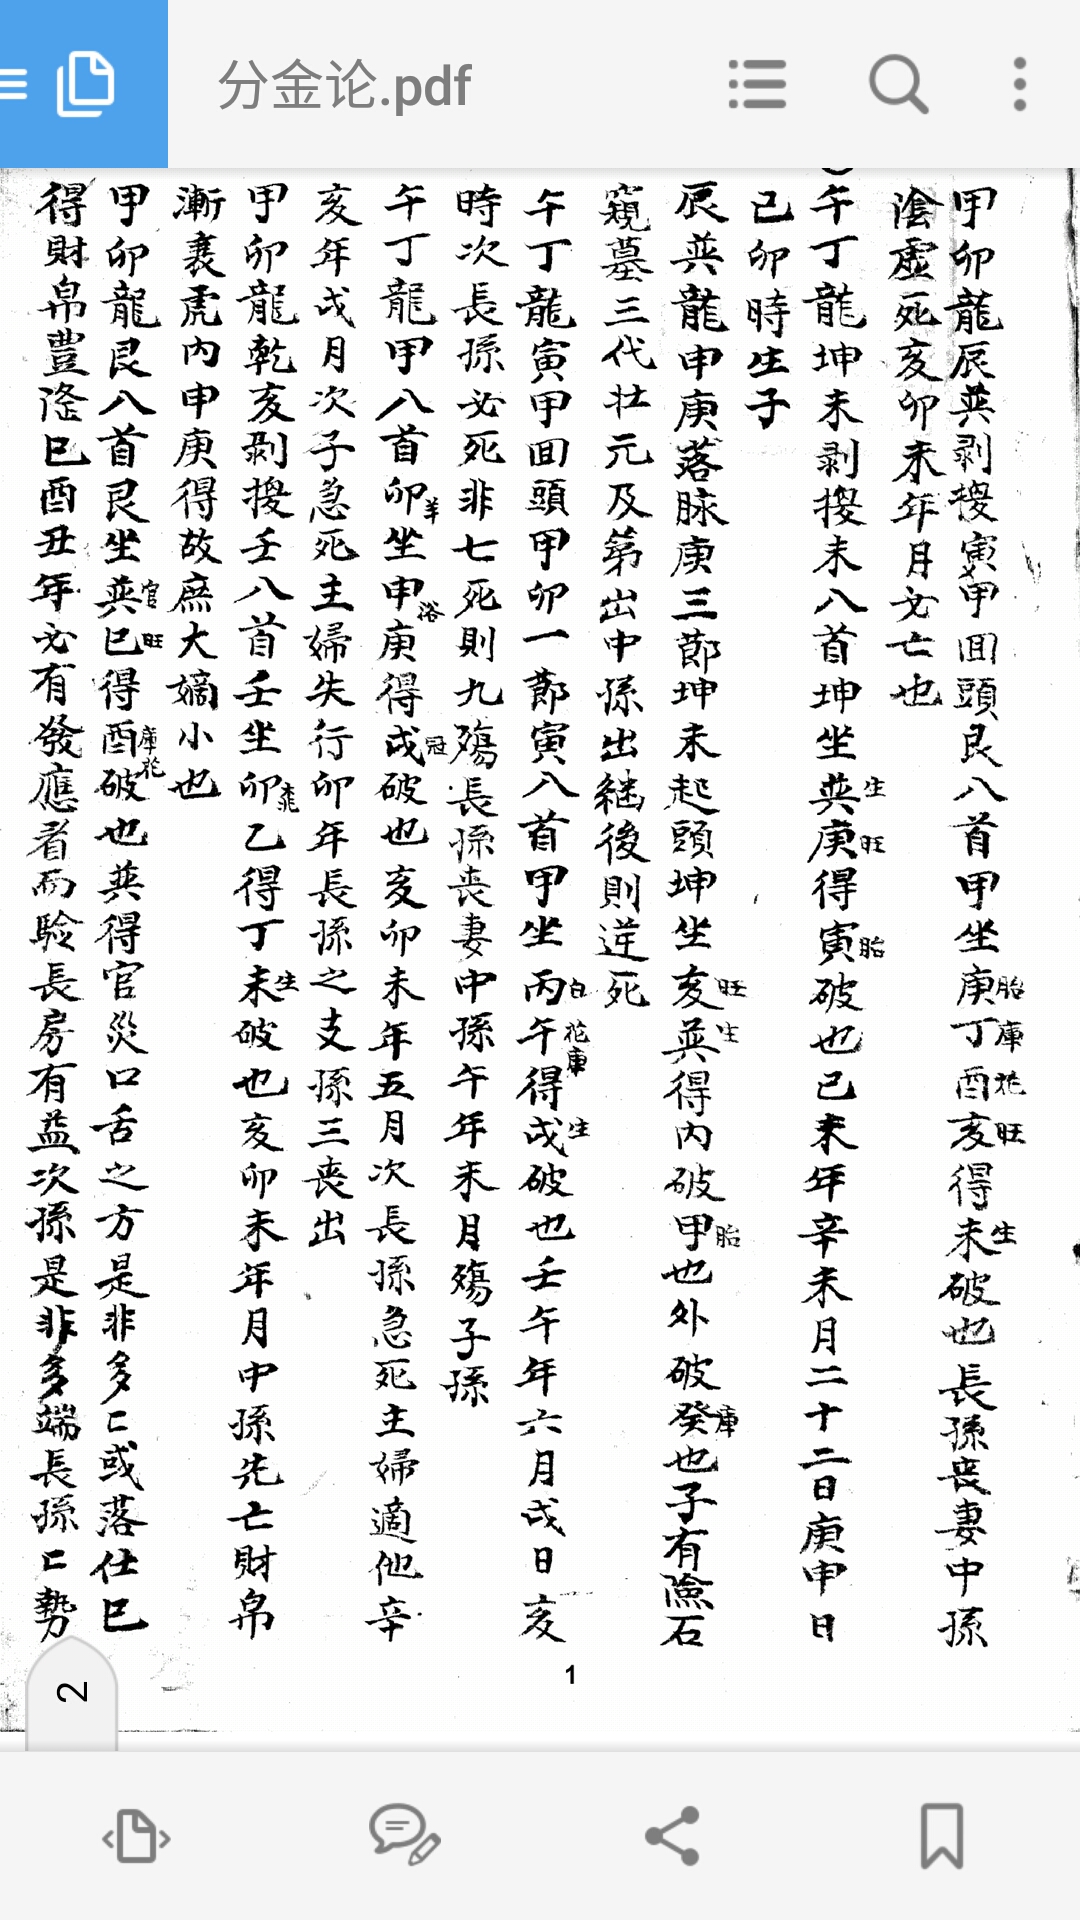 分金论.pdf
甲卯龍辰巽剥換寅甲回頭艮八首甲坐庚胎丁庫酉花亥旺得未生破也長孫喪妻中孫
陰虛死亥卯未年月必亡也
午丁龍坤未剥換未八首坤坐巽生庚旺得寅胎破也已未年辛未月二十二日庚申日
己卯時生子
辰巽龍申庚落脉庚三節坤未起頭坤坐亥旺巽生得内破甲胎也外破癸庫也子有險石
窺墓三代壮元及第出中孫出継後則逆死
午丁龍寅甲回頭甲卯一節寅八首甲坐丙午花庫得戌生破也壬午年六月戌日亥
時次長孫必死非七死則九殤長孫喪妻中孫午年未月殤子孫
午丁龍甲八首卯羊坐申浴庚得戌冠破也亥卯未年五月次長孫急死主婦適他辛
亥年戌月次子急死主婦失行卯年長孫之支孫三喪出
甲卯龍乾亥剥換壬八首壬坐卯乙得丁未生破也亥卯未年月中孫先亡財帛
漸衰虎内申庚得故庶大嫡小也
甲卯龍艮八首艮坐巽官巳旺得酉庫花破也巽得官災口舌之方是非多匸或落仕巳
得財帛豊隆巳酉丑年必有發應者而驗長房有益次孫是非多端長孫匸勢
1
2